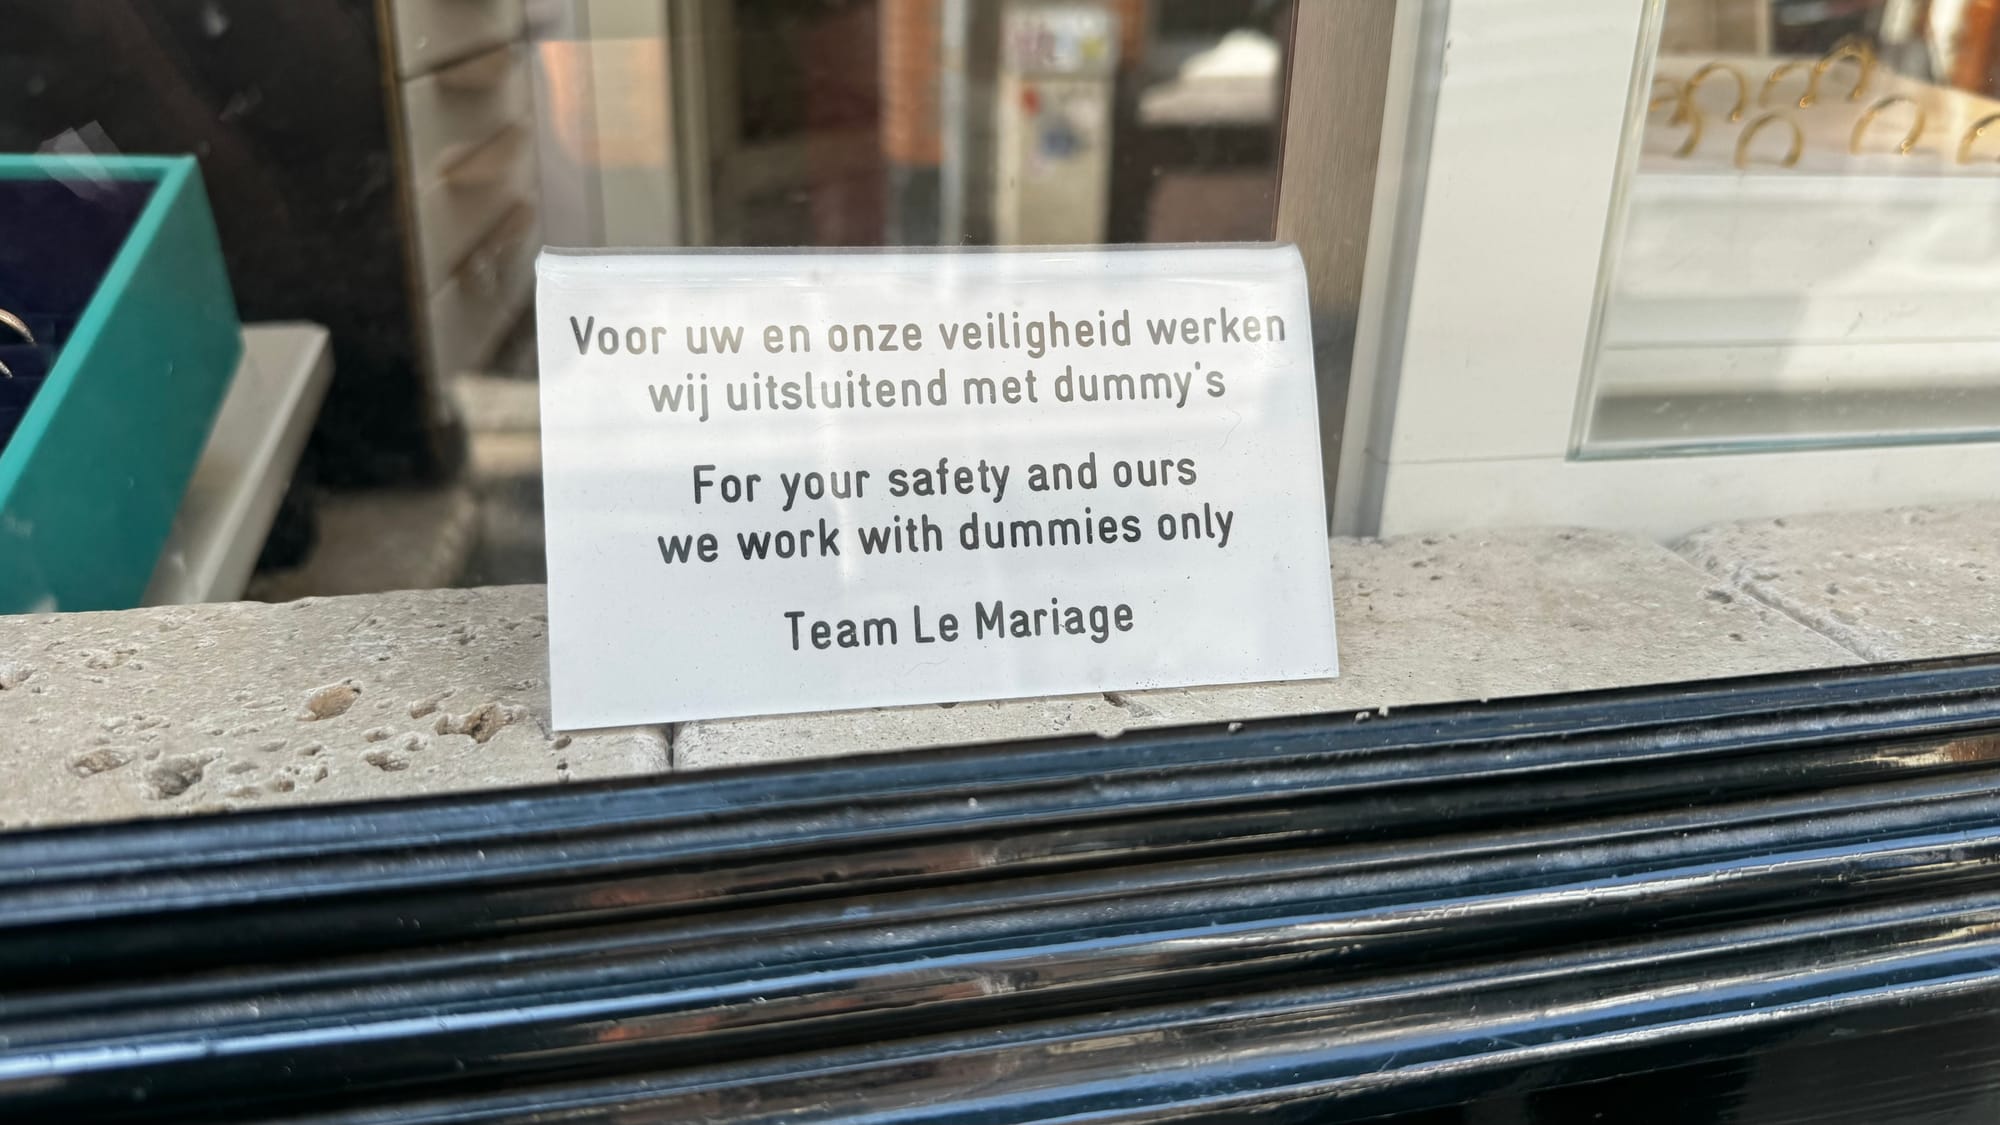 Voor uw en onze veiligheid werken
wij uitsluitend met dummy's
For your safety and ours
we work with dummies only
Team Le Mariage